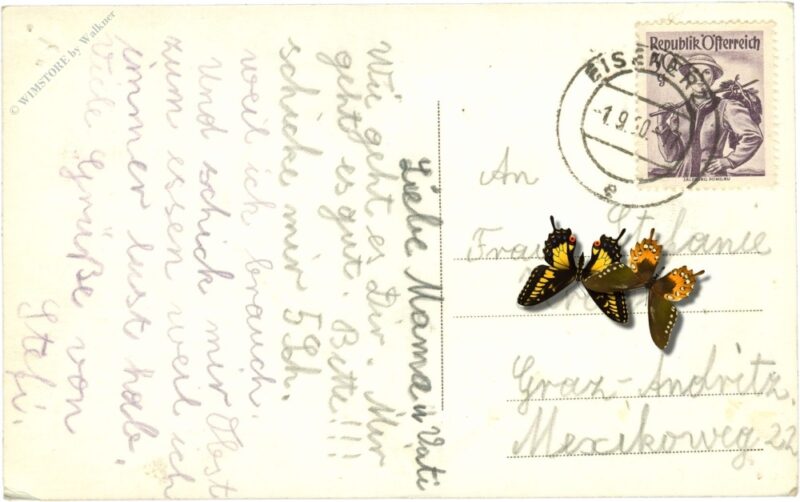 © WIMSTORE by Walkner
Liebe Mama u Vati
Wie geht es Dir. Mir
geht es gut. Bitte!!!
schicke mir 5 Sch.
weil ich brauch.
Und schick mir Obst
zum essen weil ich
immer lust hab.
Viele Grüße von
Stefi.
Republik Österreich
EISENERZ
-1.9.60-
e
An
Frau Stefanie
Graz-Andritz.
Mexikoweg 22